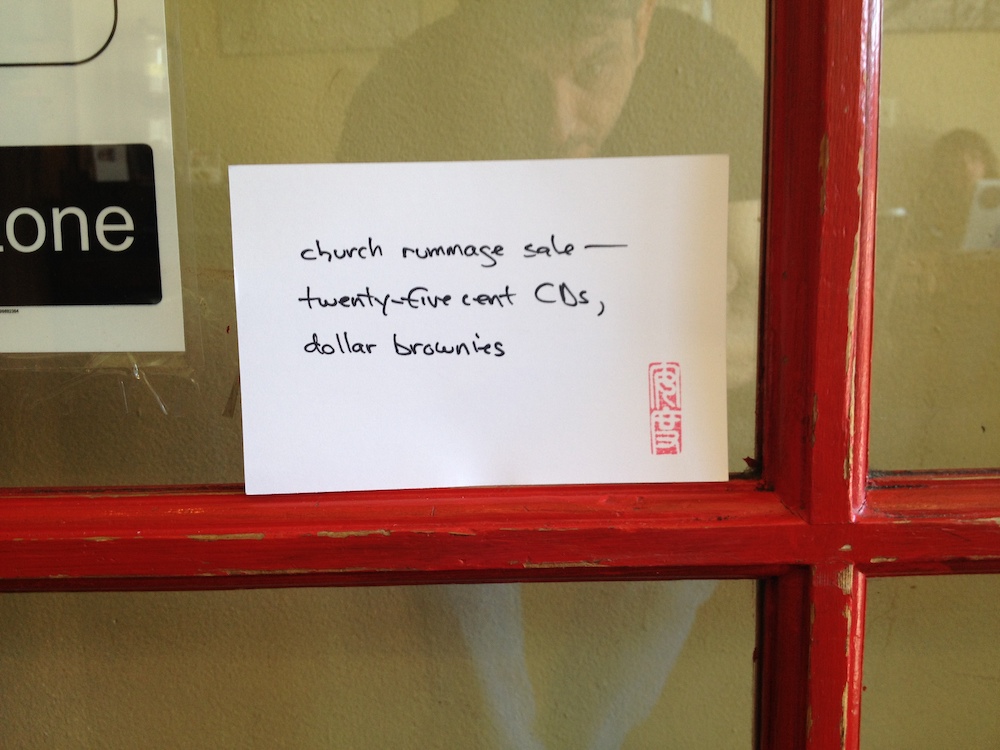 one
church rummage sale —
twenty-five cent CDs,
dollar brownies